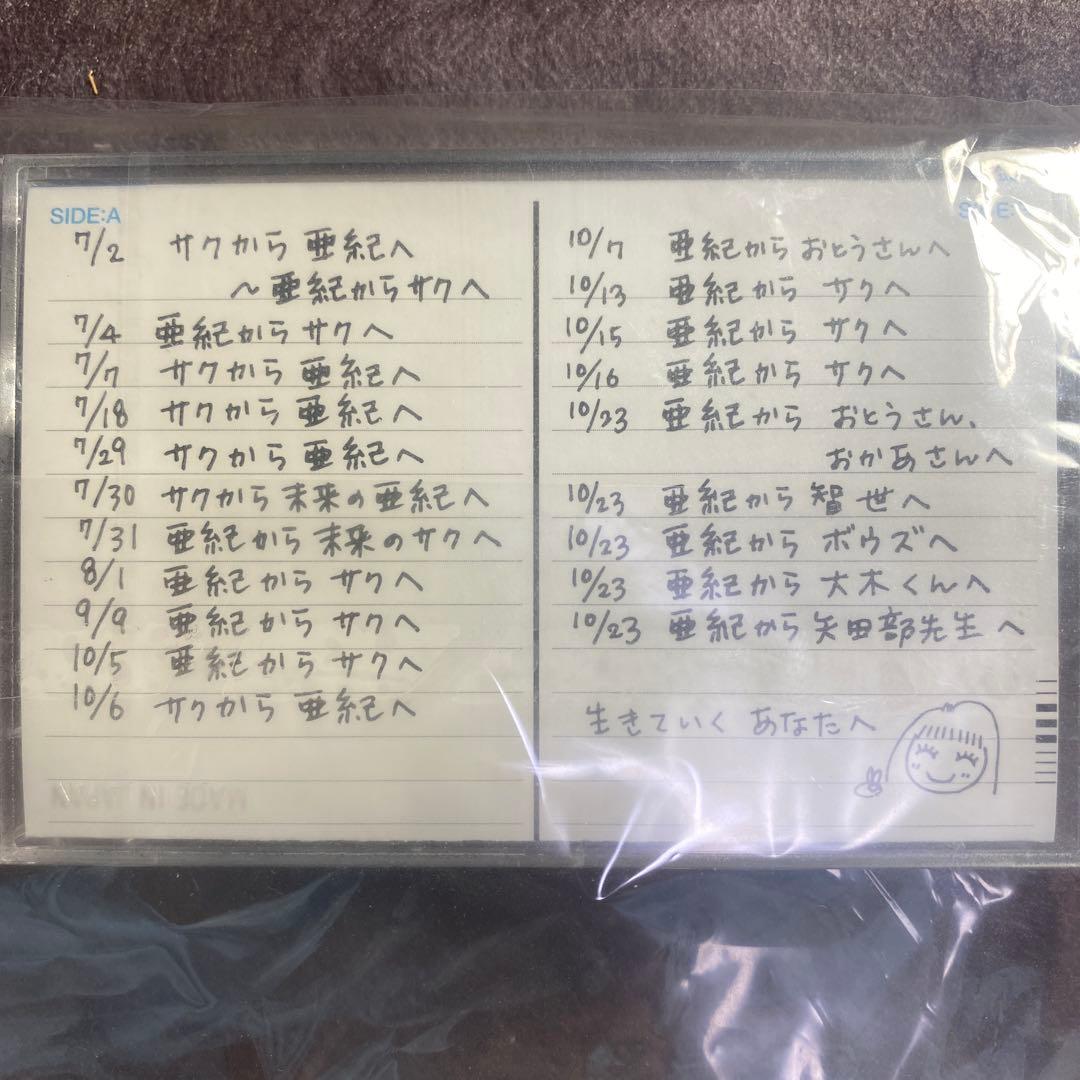 SIDE:A
7/2 サクから亜紀へ
～亜紀からサクへ
7/4 亜紀からサクへ
7/7 サクから亜紀へ
7/18 サクから亜紀へ
7/29 サクから亜紀へ
7/30 サクから未来の亜紀へ
7/31 亜紀から未来のサクへ
8/1 亜紀からサクへ
9/9 亜紀からサクへ
10/5 亜紀からサクへ
10/6 サクから亜紀へ
MADE IN JAPAN
10/7 亜紀からおとうさんへ
10/13 亜紀からサクへ
10/15 亜紀からサクへ
10/16 亜紀からサクへ
10/23 亜紀からおとうさん、
おかあさんへ
10/23 亜紀から智世へ
10/23 亜紀からボウズへ
10/23 亜紀から大木くんへ
10/23 亜紀から矢田部先生へ
生きていくあなたへ